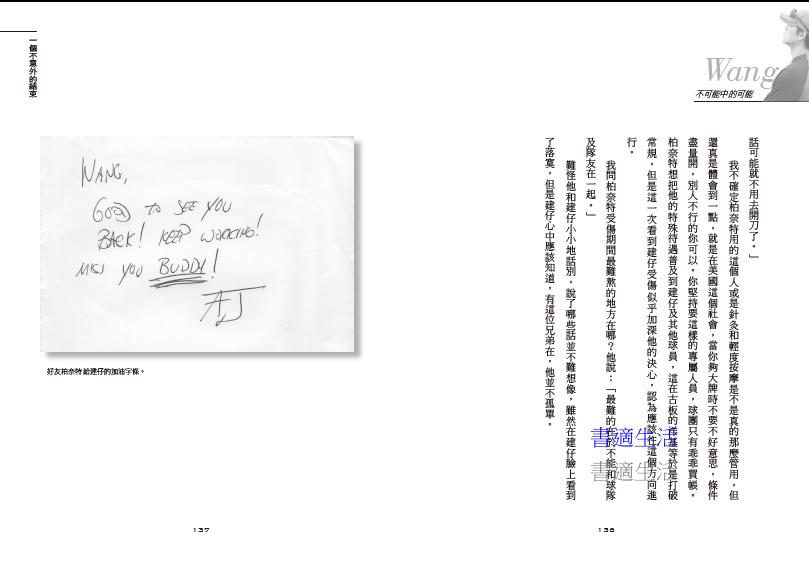 Wang
不可能中的可能
話可能就不用去開刀了。」
我不確定柏奈特用的這個人或是針灸和輕度按摩是不是真的那麼管用，但
還真是體會到一點，就是在美國這個社會，當你夠大牌時不要不好意思，條件
盡量開，別人不行的你可以。你堅持要這樣的專屬人員，球團只有乖乖買帳。
柏奈特想把他的特殊待遇普及到建仔及其他球員，這在古板的洋基等於是打破
常規，但是這一次看到建仔受傷似乎加深他的決心，認為應該往這個方向進
行。
我問柏奈特受傷期間最難熬的地方在哪？他說：「最難的在於不能和球隊
及隊友在一起。」
難怪他和建仔小小地話別，說了哪些話並不難想像，雖然在建仔臉上看到
了落寞，但是建仔心中應該知道，有這位兄弟在，他並不孤單。
書適生活
書適生活
136
一個不意外的結束
WANG,
GOOD TO SEE YOU
BACK! KEEP WORKING!
MISS YOU BUDDY!
AJ
好友柏奈特給建仔的加油字條。
137